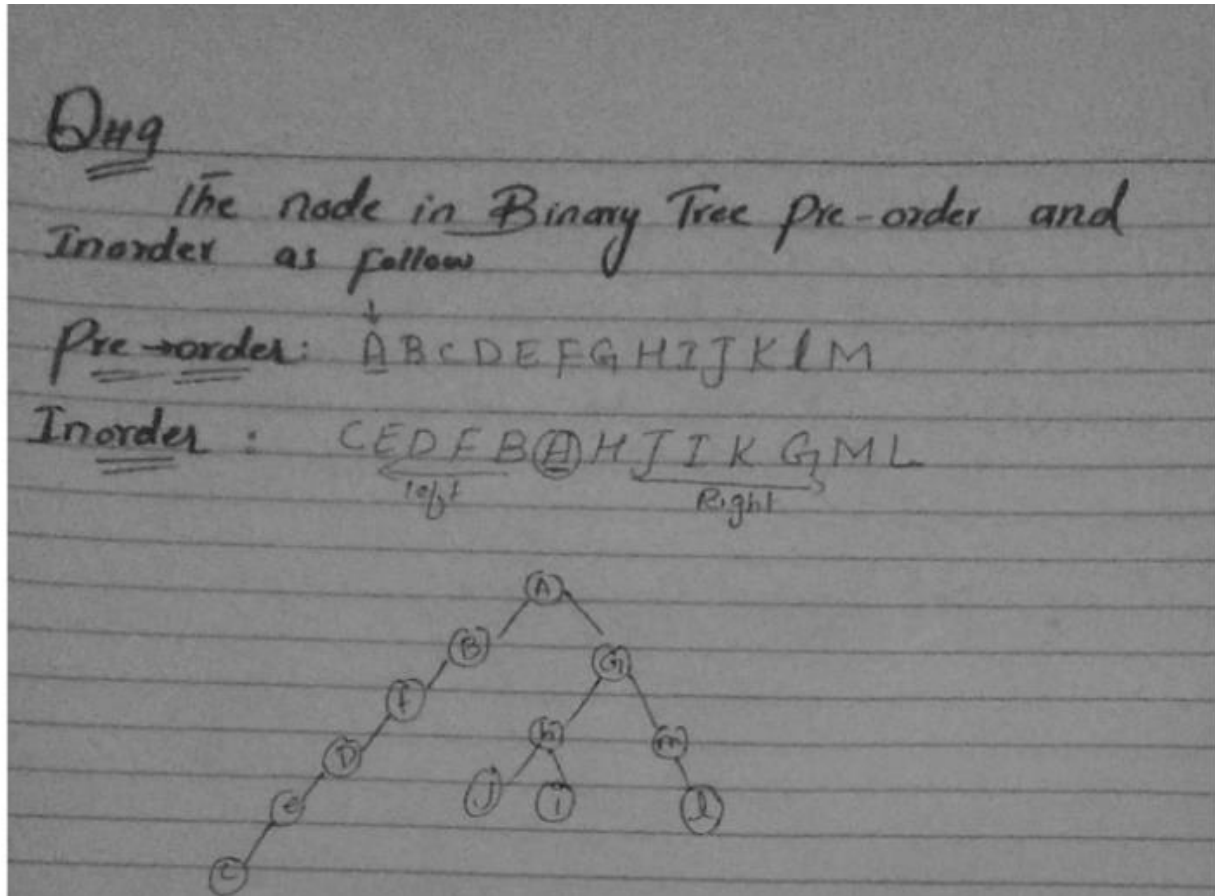 Q#9
The node in Binary Tree Pre-order and
Inorder as follow
Pre-order: A B C D E F G H I J K l M
Inorder : C E D F B A H J I K G M L
left Right
A
B G
f
h m
D
j i l
e
c